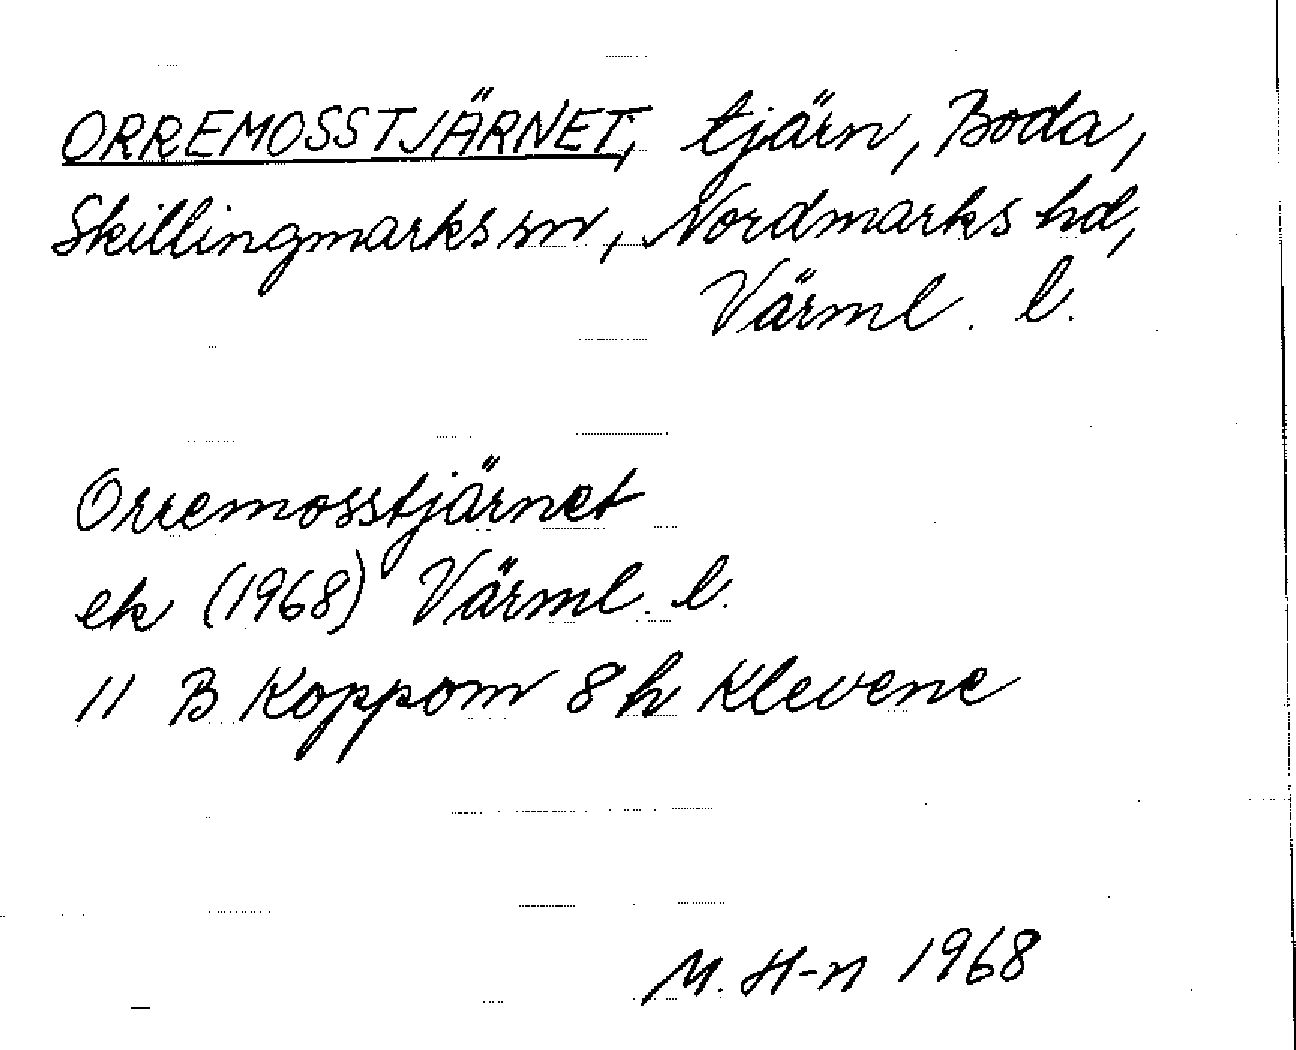 ORREMOSSTJÄRNET, tjärn, Boda,
Skillingmarks sn, Nordmarks hd,
Värml. l.
Orremosstjärnet
ek (1968) Värml. l.
11 B Koppom 8 h Klevene
M. H-n 1968